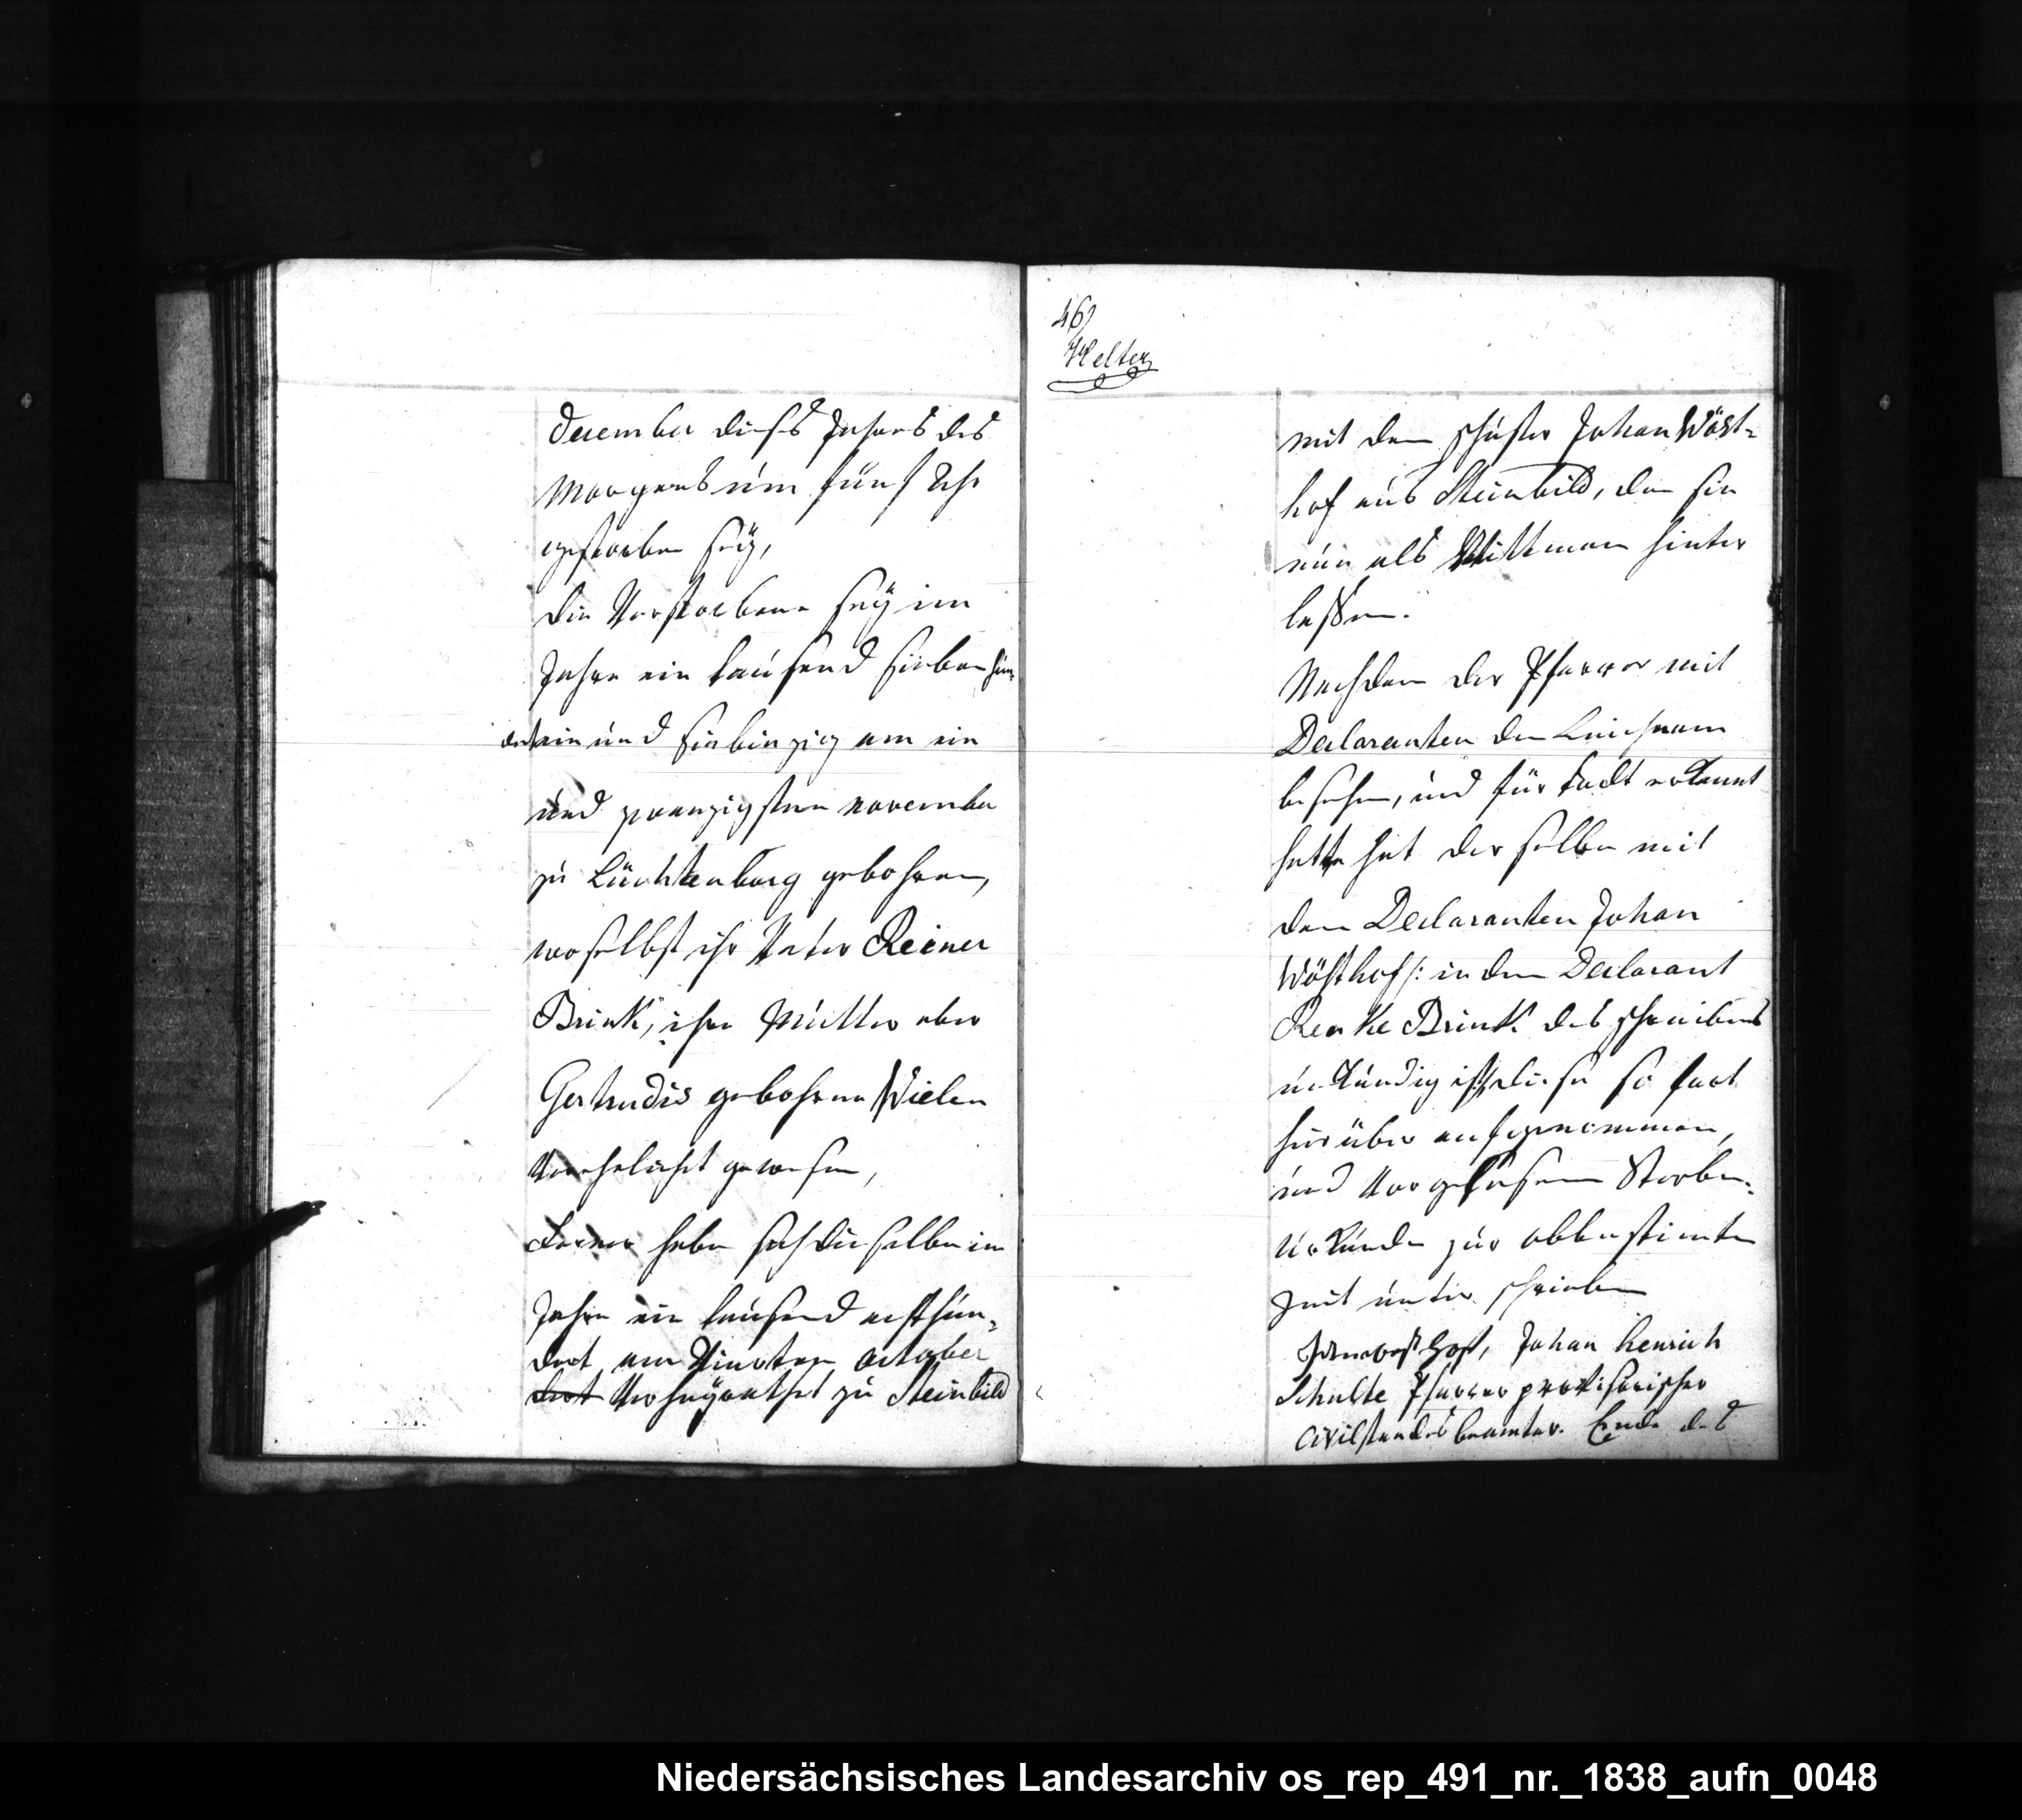 december dieses Jahres des
Morgens um fünf Uhr
gestorben seÿ,
die Verstorbene seÿ im
Jahre ein tausend siebenhun,
dert ein und siebenzig am ein
und zwanzigsten november
zu Lüchtenburg gebohren,
woselbst ihr Vater Reiner
Brink, ihre Mutter aber
Gertrudis gebohrne Wielen
Verehelicht gewesen,
Ferner habe sich dieselbe im
Jahre ein tausend achthun,
dert am Vierten october
dert Verheÿrathet zu Steinbild
46)
Helter
mit dem schuster Johan Wöst=
hof aus Steinbild, den sie
nun als Wittman hinter
lassen.
Nachdem der Pfarrer mit
Declaranten den Leichnam
besehen, und für todt erkannt
hatte hat derselbe mit
dem Declaranten Johan
Wösthof /: in dem Declarant
Renke Brink des schreibens
unkündig ist, diese so fort
hierüber aufgenommen,
und Vorgelesene Sterbe=
urkunde zur obbestimten
Zeit unterschrieben
Johan Henrich
Schulte Pfarrer provisorischer
civilstandes beamter. Ende des
Niedersächsisches Landesarchiv os_rep_491_nr._1838_aufn_0048